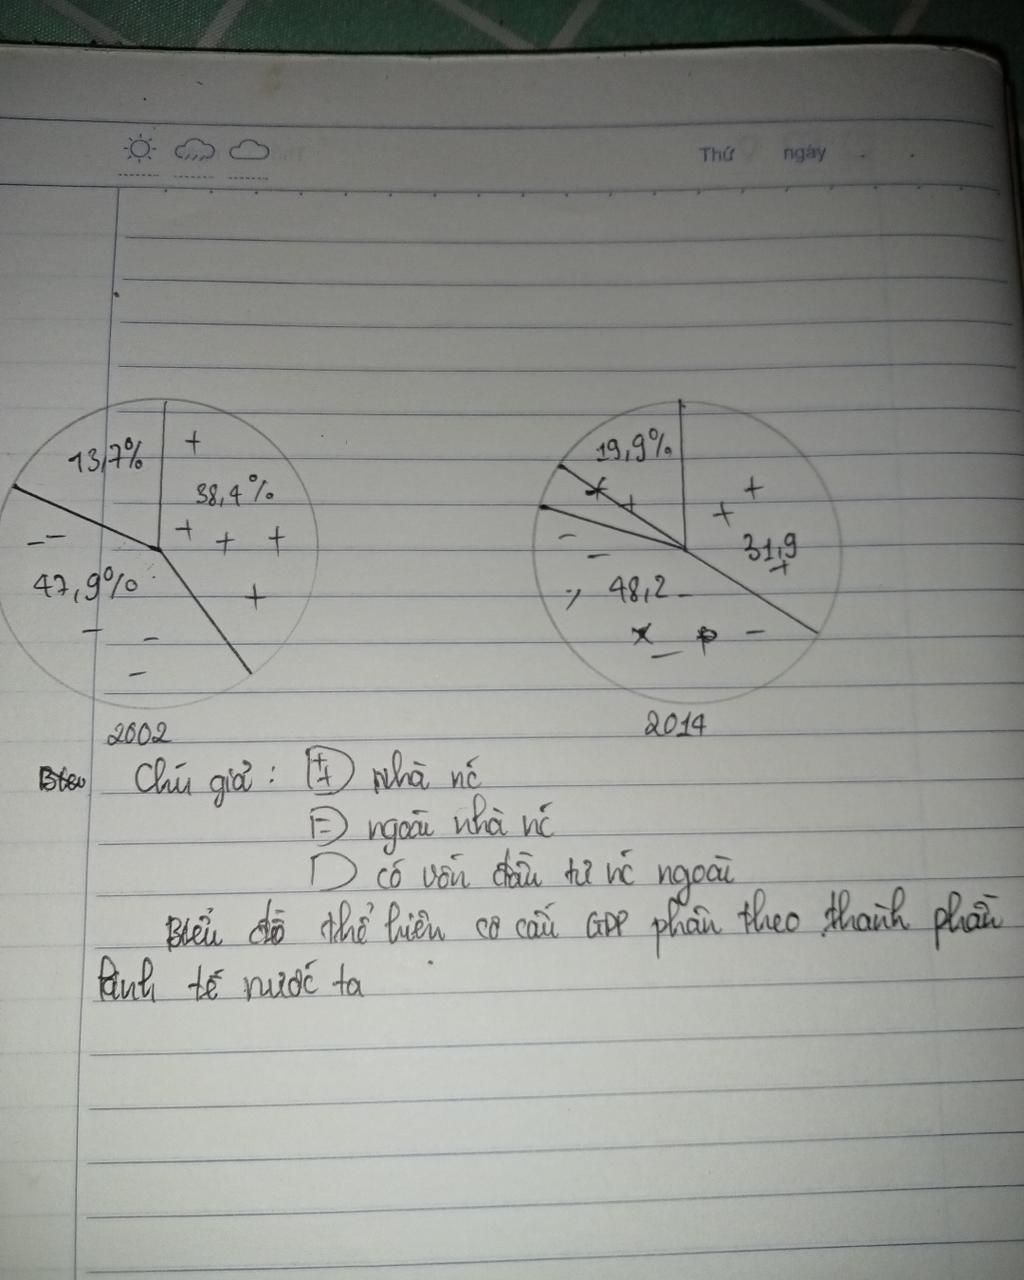 Thứ ngày
13,7%
38,4%
47,9%
2002
19,9%
31,9
48,2
2014
Chú giả: nhà nć
ngoài nhà nć
có vốn đầu tư nć ngoài
Biểu đồ thể hiện cơ cấu GDP phân theo thành phần
kinh tế nước ta